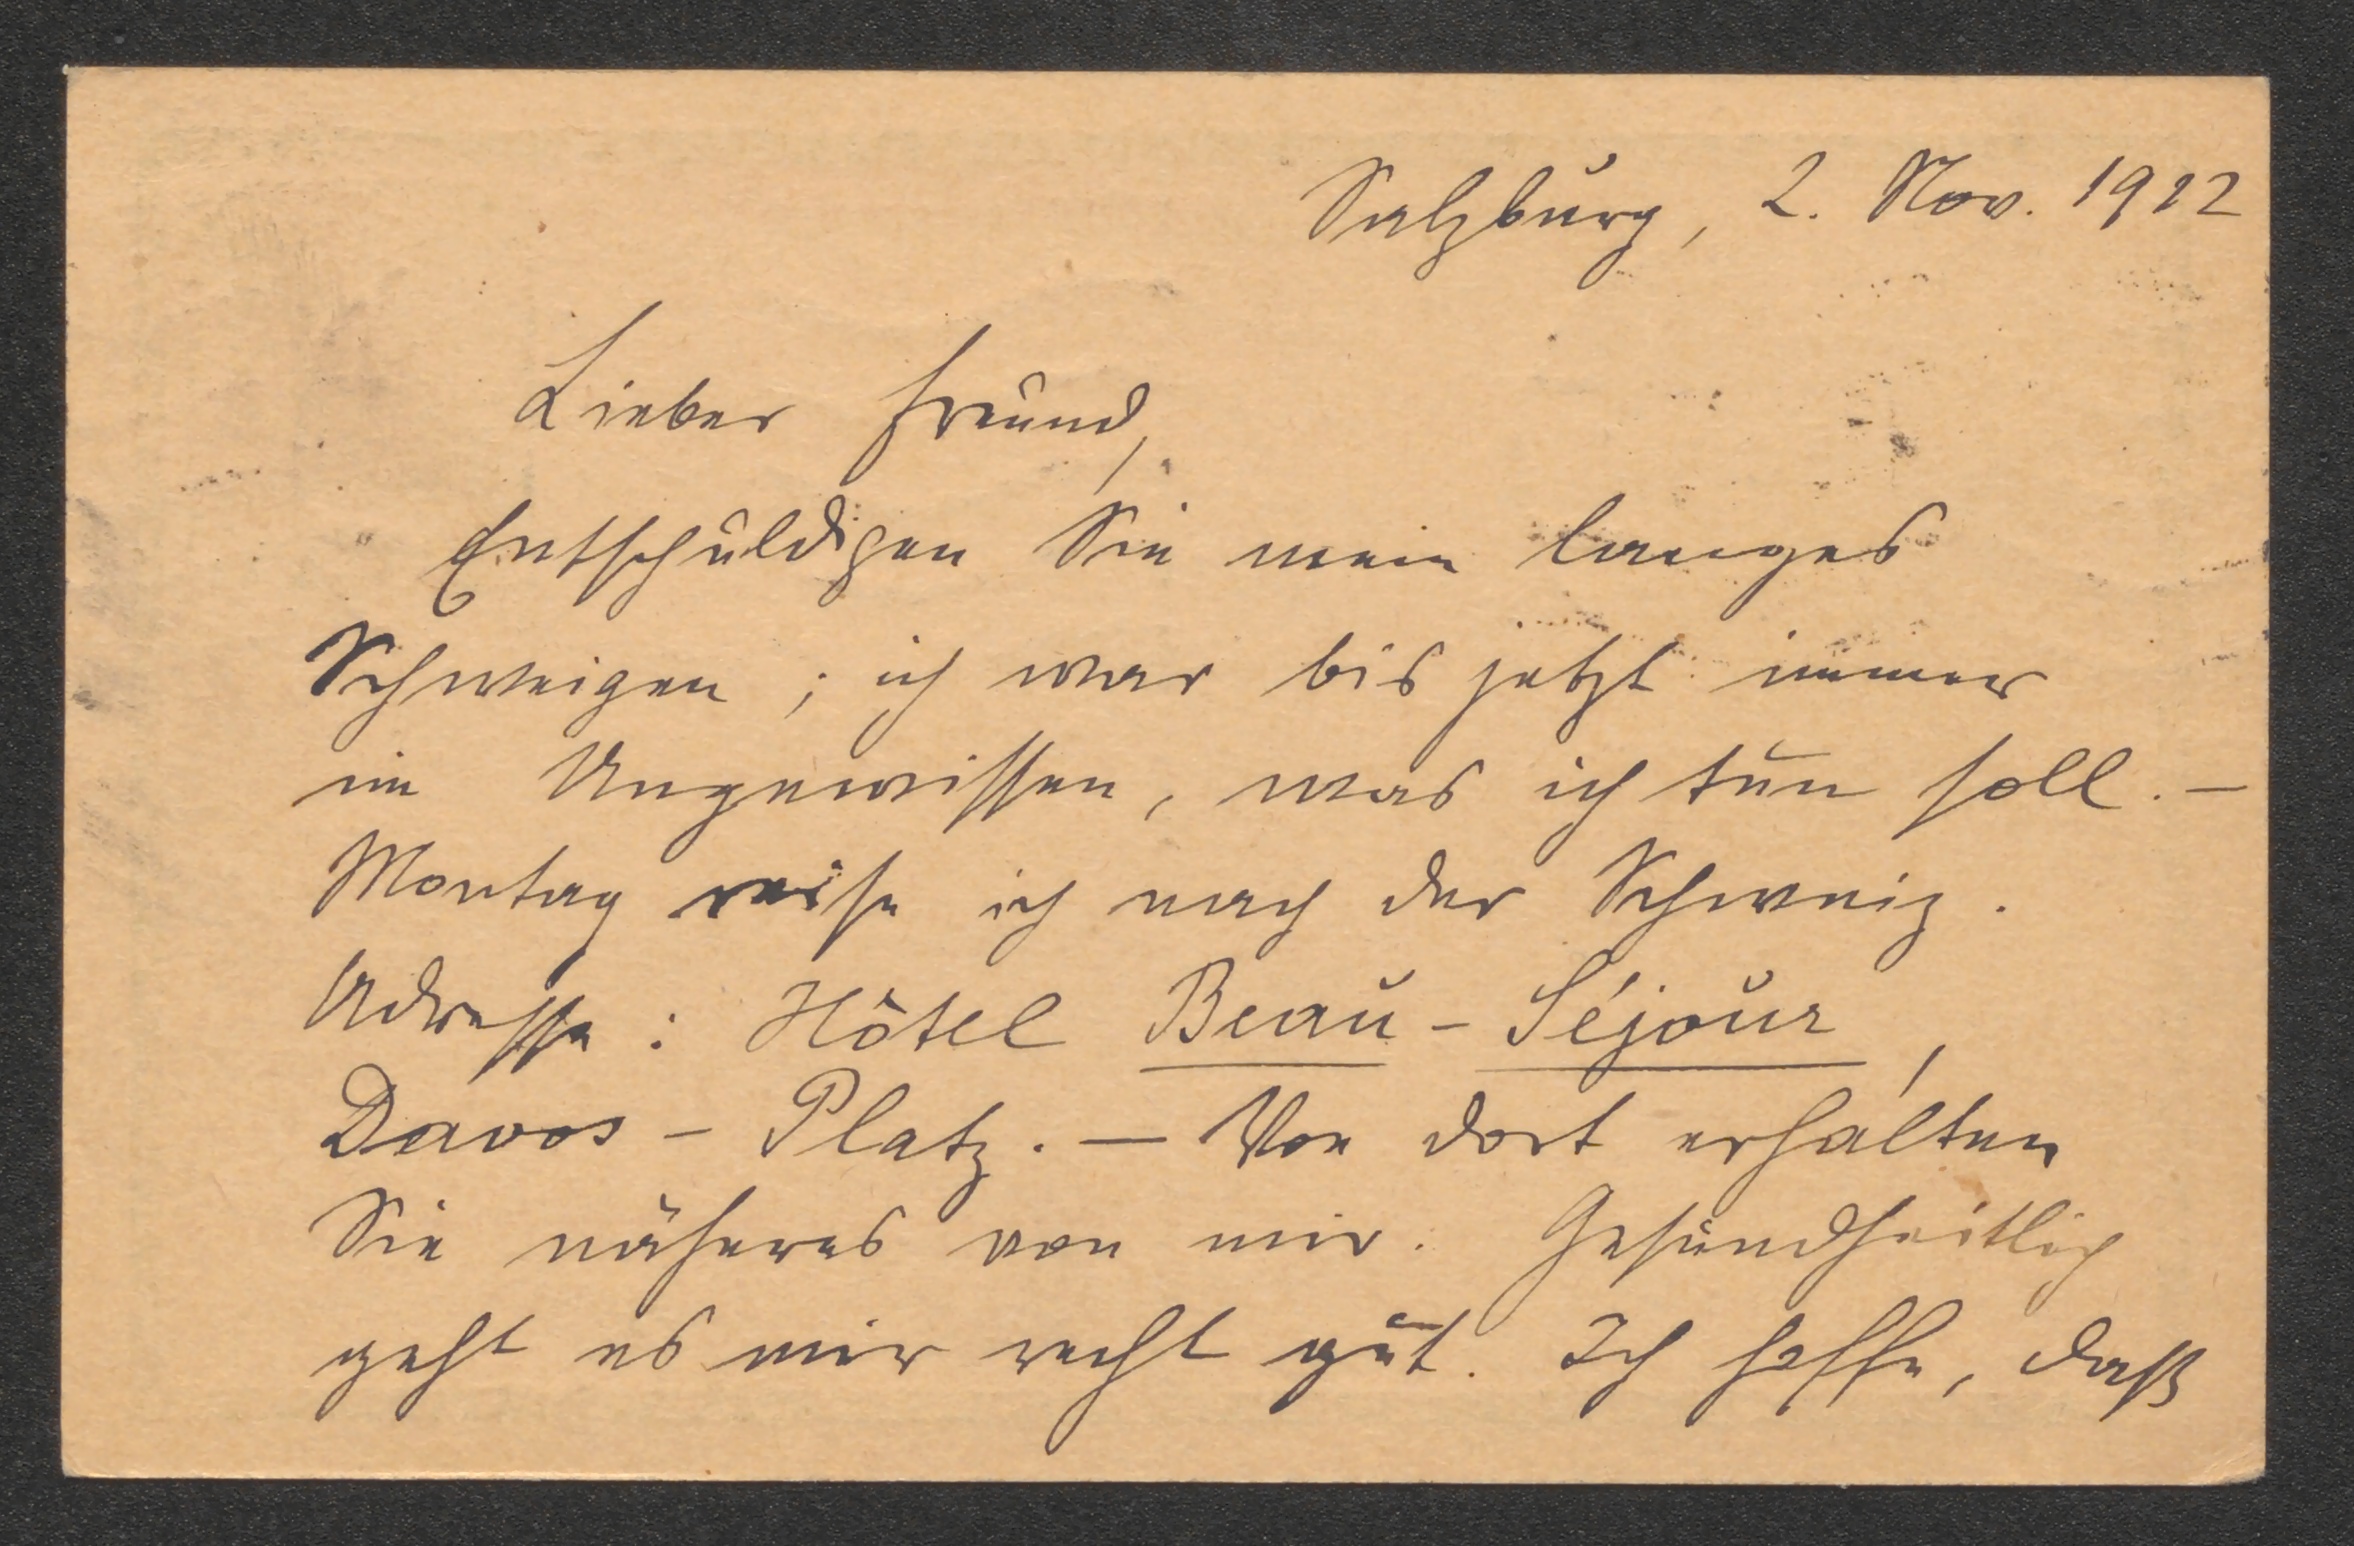 Salzburg, 2. Nov. 1912
Lieber Freund,
Entschuldigen Sie mein langes
Schweigen; ich war bis jetzt immer
im Ungewissen, was ich tun soll. —
Montag reise ich nach der Schweiz.
Adresse: Hôtel Beau-Séjour,
Davos-Platz. — Von dort erhalten
Sie näheres von mir. Gesundheitlich
geht es mir recht gut. Ich hoffe, daß